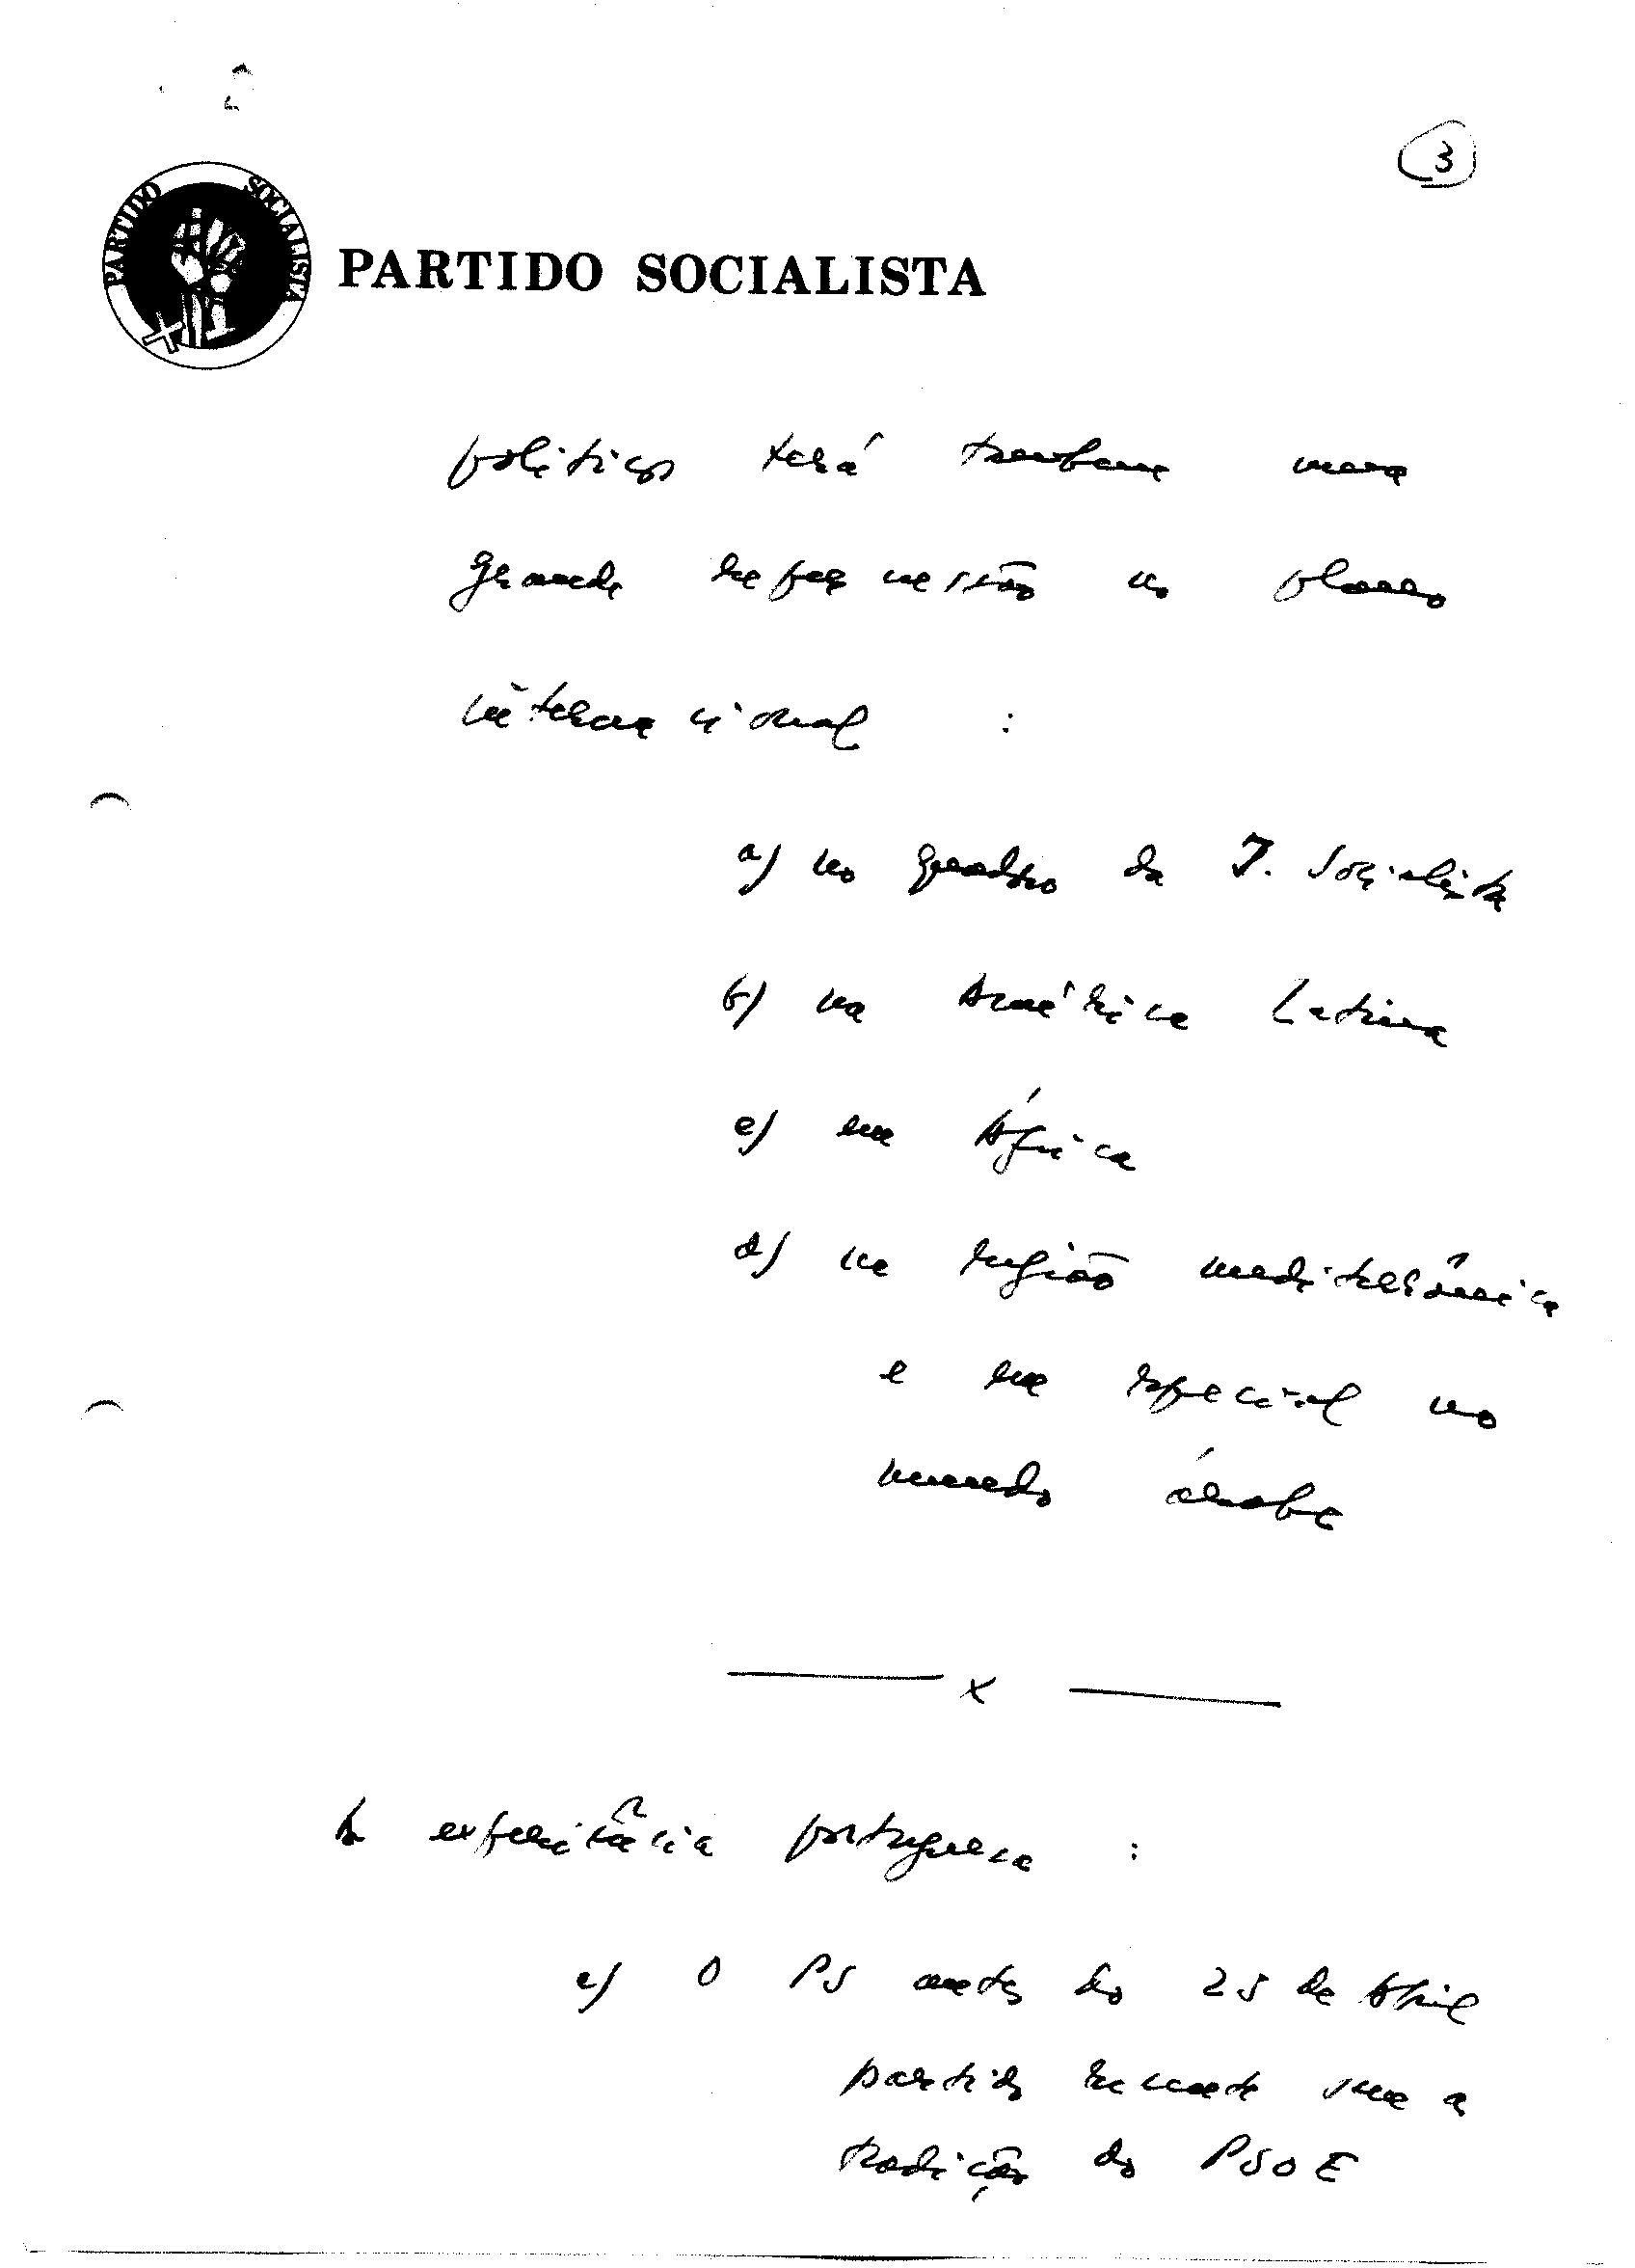 3
PARTIDO SOCIALISTA
PARTIDO SOCIALISTA
político terá tambem uma
grande repercussão no plano
internacional :
a) no quadro da I. Socialista
b) na América Latina
c) em África
d) na região mediterrânica
e em especial no
mundo árabe
x
A experiência portuguesa :
a) O PS antes do 25 de Abril
partido recente sem a
tradição do PSOE